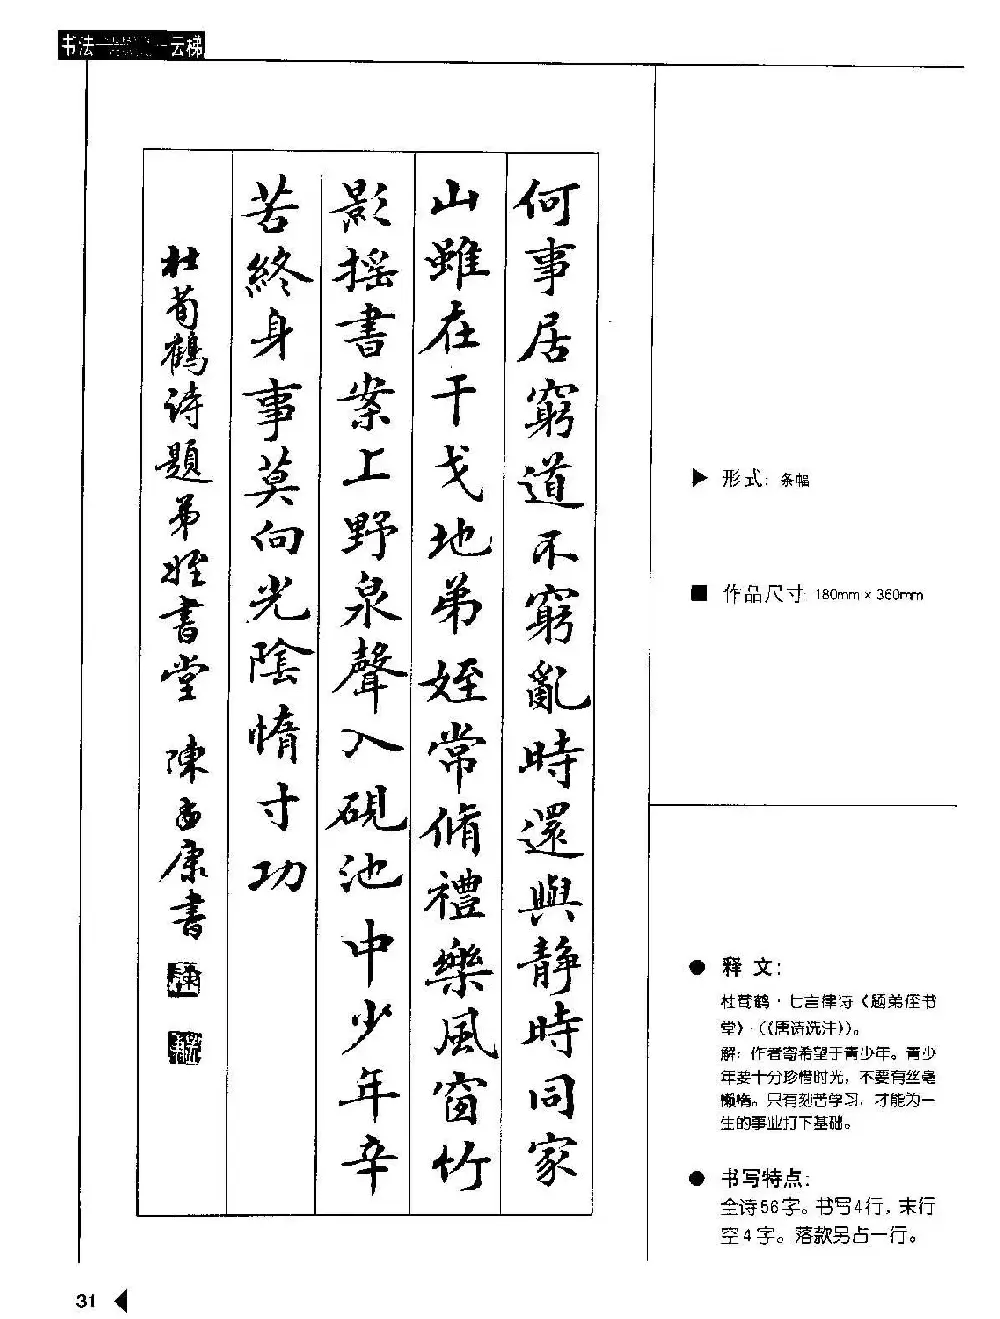 书法 云梯
何事居窮道不窮亂時還與静時同家
山雖在干戈地弟姪常脩禮樂風窗竹
影摇書案上野泉聲入硯池中少年辛
苦終身事莫向光陰惰寸功
杜荀鶴诗題弟姪書堂 陳 康書
▶ 形式: 条幅
■ 作品尺寸: 180mm × 360mm
● 释 文:
杜荀鹤·七言律诗《题弟侄书
堂》·(《唐诗选注》)。
解: 作者寄希望于青少年。青少
年要十分珍惜时光，不要有丝毫
懒惰。只有刻苦学习，才能为一
生的事业打下基础。
● 书写特点:
全诗56字。书写4行，末行
空4字。落款另占一行。
31